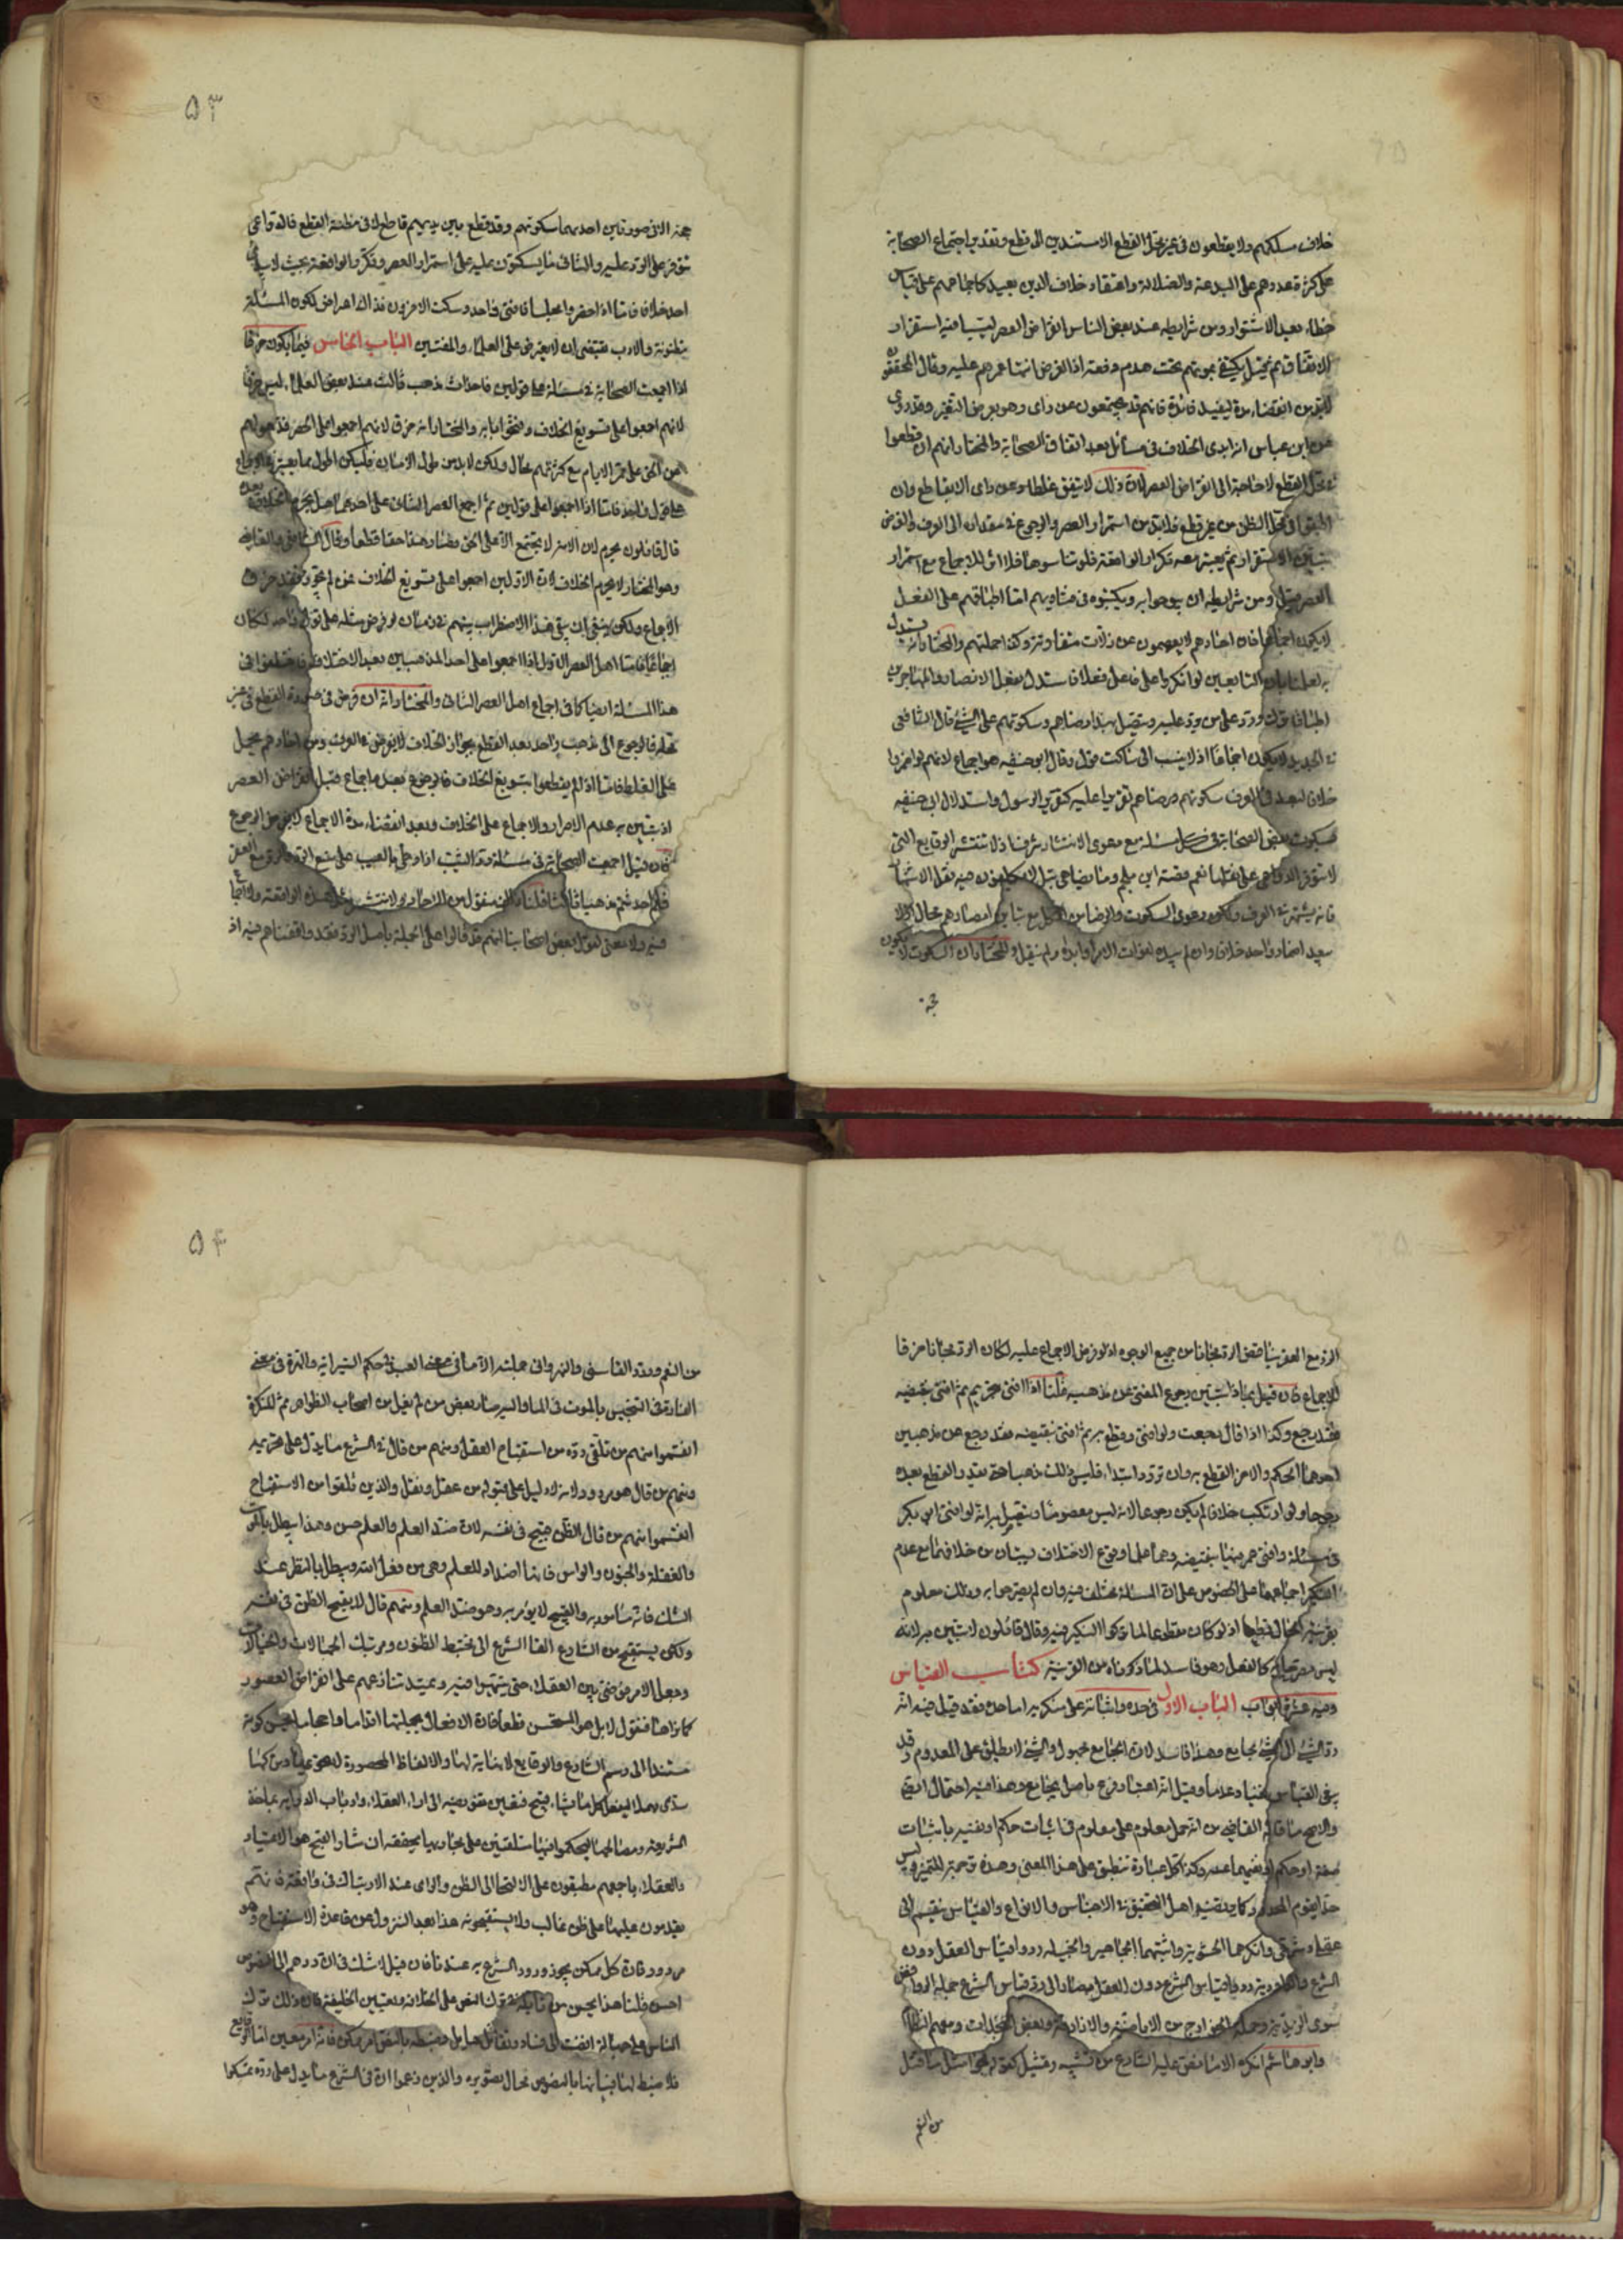 خلاف مسلكهم ولا يقطعون في غير محل القطع الا مستندين الى قطع وتقدير اجتماع الصحابة
على كثرة عددهم على البدعة والضلالة واعتقاد خلاف الدين بعيد كاجماعهم على قياس
خطاء بعيد الاستقرار ومن شرايطه عند بعض الناس انقراض العصر ليتبيا فيه استقرار
الاتفاق ثم قيل يكتفى بموتهم تحت هدم دفعة اذ الغرض انتها عمرهم عليه وقال المحققون
لابد من انقضاء مدة ليفيد فائدة فانهم قد يجتمعون عن راى وهو بعرض التغير وقد روى
عن ابن عباس انه ابدى الخلاف في مسائل بعد اتفاق الصحابة والمختار انهم ان قطعوا
في محل القطع لا حاجة الى انقراض العصر لان ذلك لا يتفق غلطا وعن راى الا بقاطع وان
اتفقوا في محل الظن من غير قطع فلا بد من استمرار العصر والرجوع في مقداره الى العرف والغرض
تبين الاستقرار ثم يعتبر معه تكرار الواقعة فلو تناسوها فلا اثر للاجماع مع استمرار
العصر وقيل ومن شرايطه ان يبوحوا به ويكتبوه في فتاويهم اما اطباقهم على الفعل
لا يكون اجماعا فان احادهم لا يعصمون عن زلات متفاوتة وكذا جملتهم والمختار انه يستدل
به لعلمنا بان التابعين لو انكروا على فاعل فعلا فاستدل بفعل الانصار والمهاجرين
اطباقا ترك ورد على من رد عليه ويتصل بهذا رضاهم وسكوتهم على الشئ قال الشافعي
في الجديد لا يكون اجماعا اذ لا ينسب الى ساكت قول وقال ابو حنيفه هو اجماع لانهم لو اضمروا
خلافا لبعد في العرف سكوتهم ورضاهم تقريرا عليه كتقرير الرسول واستدلال ابي حنيفه
بسكوت بعض الصحابة في كل مسئلة مع دعوى الانتشار سرف اذ لا تنتشر الوقايع التي
لا تتوفر الدواعي على نقلها نعم قصة ابن ملجم وما يضاهي قتل الاكابر يتوفر فيه نقل الاشتهار
فانه يشتهر في العرف ولكن دعوى السكوت والرضا من الكل مع تباين امصارهم محال اذ لا
يبعد اضمار واحد خلافا وان لم يبده لفوات الامر او ابداه ولم ينقل والمختار ان السكوت لا يكون
حجة
٥٣
حجة الا في صورتين احديهما سكوتهم وقد قطع بين يديهم قاطع لا في مظنة القطع فالدواعي
تتوفر على الرد عليه والثاني ما يسكتون عليه على استمرار العصر وتكرر الواقعة بحيث لا يبدى
احد خلافا فاما اذا حضروا مجلسا فافتى واحد وسكت الاخرون فذاك اعراض لكون المسئلة
مظنونة والادب يقتضي ان لا يعترض على العلماء والمفتين الباب الخامس فيما يكون خرقا
اذا اجمعت الصحابة في مسئلة على قولين فاحداث مذهب ثالث عند بعض العلماء ليس خرقا
لانهم اجمعوا على تسويغ الخلاف وفتحوا بابه والمختار انه خرق لانهم اجمعوا على الحصر فذهولهم
عن الحق على ممر الايام مع كثرتهم محال ولكن لا بد من طول الازمان فليكن اطول مما يعتبر في الاجماع
على قول واحد فاما اذا اجمعوا على قولين ثم اجمع العصر الثاني على احدهما هل يحرم الخلاف بعده
قال قائلون يحرم لان الامة لا تجتمع الا على الحق فصار هذا حقا قطعا وقال الشافعي والقاضي
وهو المختار لا يحرم الخلاف لان الاولين اجمعوا على تسويغ الخلاف
الاجماع ولكن ينبغي ان يبقى هذا الاضطراب بينهم في زمان لو فرض مثله على قول واحد لكان
اجماعا فاما اهل العصر الاول اذا اجمعوا على احد المذهبين بعد الاختلاف فقد اختلفوا في
هذا المسئلة ايضا كما في اجماع اهل العصر الثاني والمختار انه ان فرض في صورة القطع في غير
محله فالرجوع الى مذهب واحد بعد القطع بجواز الخلاف لا يفرض في العرف ومن احادهم يحمل
على الغلط فاما اذ لم يقطعوا بتسويغ الخلاف فالرجوع بعده اجماع قبل انقراض العصر
اذ يتبين به عدم الاصرار والاجماع على الخلاف وبعد انقضاء مدة الاجماع لا يفرض الرجوع
فان قيل اجمعت الصحابة في مسئلة رد الثيب اذا وطئ بالعيب على منع الرد والرد مع العقر
فلم احدثتم مذهبا ثالثا قلنا ذلك منقول من الاحاد ولا تنتشر مثل هذه الواقعة ولا اجماع
فيه ولا معنى لقول بعض اصحابنا انهم قد قالوا على الجملة باصل الرد فقد وافقناهم فيه اذ
الرد مع العقر يناقض الرد مجانا من جميع الوجوه اذ لو فرض الاجماع عليه لكان الرد مجانا خرقا
للاجماع فان قيل بماذا يتبين رجوع المفتي عن مذهبه قلنا اذا افتى بتحريم ثم افتى بنقيضه
فقد رجع وكذا اذا قال رجعت ولو افتى وقطع به ثم افتى بنقيضه فقد رجع عن مذهبين
احدهما الحكم والاخر القطع به وان تردد ابتداء فليس ذلك مذهبا حتى يقدر القطع بعده
رجوعا ولو ارتكب خلافه لم يكن رجوعا لانه ليس معصوما ويتصل به انه لو افتى ابو بكر
في مسئلة وافتى عمر فيها بنقيضه وهما علما وقوع الاختلاف يستبان من خلافهما مع عدم
النكير اجماعهما على الخصوص على ان المسئلة مختلف فيه وان لم يصرحوا به وذلك معلوم
بقرينة الحال قطعا اذ لو كان مقطوعا لما تركوا النكير فيه وقال قائلون لا يتبين به لانه
ليس بصريح كالفعل وهو فاسد لما ذكرناه من القرينة كتاب القياس
وفيه عشرة ابواب الباب الاول في حده واثباته على منكريه اما حده فقد قيل فيه انه
رد الشئ الى الشئ بجامع وهذا فاسد لان الجامع مجهول والشئ لا يطلق على المعدوم وقد
يجرى القياس نفيا وعدما وقيل انه اعتبار فرع باصل بجامع وهذا فيه احتمال ايضا
والاصح ما قاله القاضي من انه حمل معلوم على معلوم في اثبات حكم او نفيه باثبات
صفة او حكم او نفيهما عنه وكذا كل عبارة تنطبق على هذا المعنى وهذه ترجمة للتمييز وليس
حدا يقوم المحدود كما يعتقده اهل التحقيق في الاجناس والانواع والقياس ينقسم الى
عقلي وشرعي وانكرهما الحشوية واثبتهما الجماهير والحنبلية ردوا قياس العقل دون
الشرع والداودية ردوا قياس الشرع دون العقل وصار الى رد قياس الشرع جملة الروافض
سوى الزيدية وجملة الخوارج من الاباضية والازارقة وبعض النجدات ومعهم النظام
وابو هاشم انكره الا ما نص عليه الشارع من تشبيه وتمثيل كقوله فجزاء مثل ما قتل
من النعم
٥٤
من النعم وردد القاسني والنهرواني جملته الا ما في معناه العبد في حكم السراية والذرة في معنى
الفارة في التنجيس بالموت في الماء واليه صار بعض من لم يغل من اصحاب الظواهر ثم المنكرة
انقسموا فمنهم من تلقى رده من استقباح العقل ومنهم من قال في الشرع ما يدل على تحريمه
ومنهم من قال هو مردود لانه لا دليل على قبوله من عقل ونقل والذين تلقوا من الاستقباح
انقسموا فمنهم من قال الظن قبيح في نفسه لانه ضد العلم والعلم حسن وهذا يبطل بالموت
والغفلة والجنون والوسواس فانها اضداد للعلم وهي من فعل الله ويبطل بالنظر عند
الشك فانه مامور به والقبيح لا يؤمر به وهو ضد العلم ومنهم قال لا يقبح الظن في نفسه
ولكن يستقبح من الشارع القاء الشرع الى مختبط الظنون ومرتبك الجهالات والخيالات
وجعل الامر فوضى بين العقلاء حتى ينتهبوا فيه ويمتد تنازعهم على انقراض العصور
كما نراها فنقول لا بل هو المستحسن قطعا فان الافعال بجملتها اقداما واحجاما يحسن كونه
مستندا الى رسم الشارع والوقايع لا نهاية لها والالفاظ المحصورة لا تحويها ومن تركها
سدى مهملا ليفعل كل ما يشاء قبيح فيتعين تفويضه الى اراء العقلاء وارباب الدراية بمآخذ
الشريعة ومصالحها ليحكموا فيها متلقين على مجاريها يحققه ان مثار القبح هو الاعتياد
والعقلاء باجمعهم مطبقون على الالتجا الى الظن والراى عند الارتباك في واقعة فانهم
يقدمون عليها على ظن غالب ولا يستقبحونه هذا بعد النزول عن قاعدة الاستقباح وهو
مردود فان كل ممكن يجوز ورود الشرع به عندنا فان قيل لا شك في ان ردهم الى النصوص
احسن قلنا هذا يحسن من قائله ترك النص على الخلافة وتعيين الخليفة فان ذلك ترك
الناس على عماية افضت الى فساد وتقاتل هايل وضبطه بالنص امر ممكن فانه امر معين اما الوقايع
فلا ضبط لها فبيانها بالنصوص محال تصويره والذين زعموا ان في الشرع ما يدل على رده تمسكوا